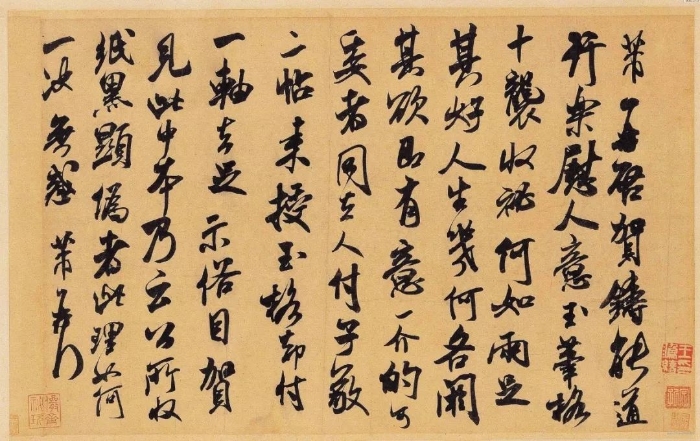 芾再啓賀鑄能道
行樂慰人意玉筆格
十襲收祕何如兩足
其好人生幾何各闕
其欲即有意一介的可
委者同去人付子敬
二帖來授玉格却付
一軸去足示俗目賀
見此中本乃云公所收
紙黑顯偽者此理如何
一決無惑芾再行